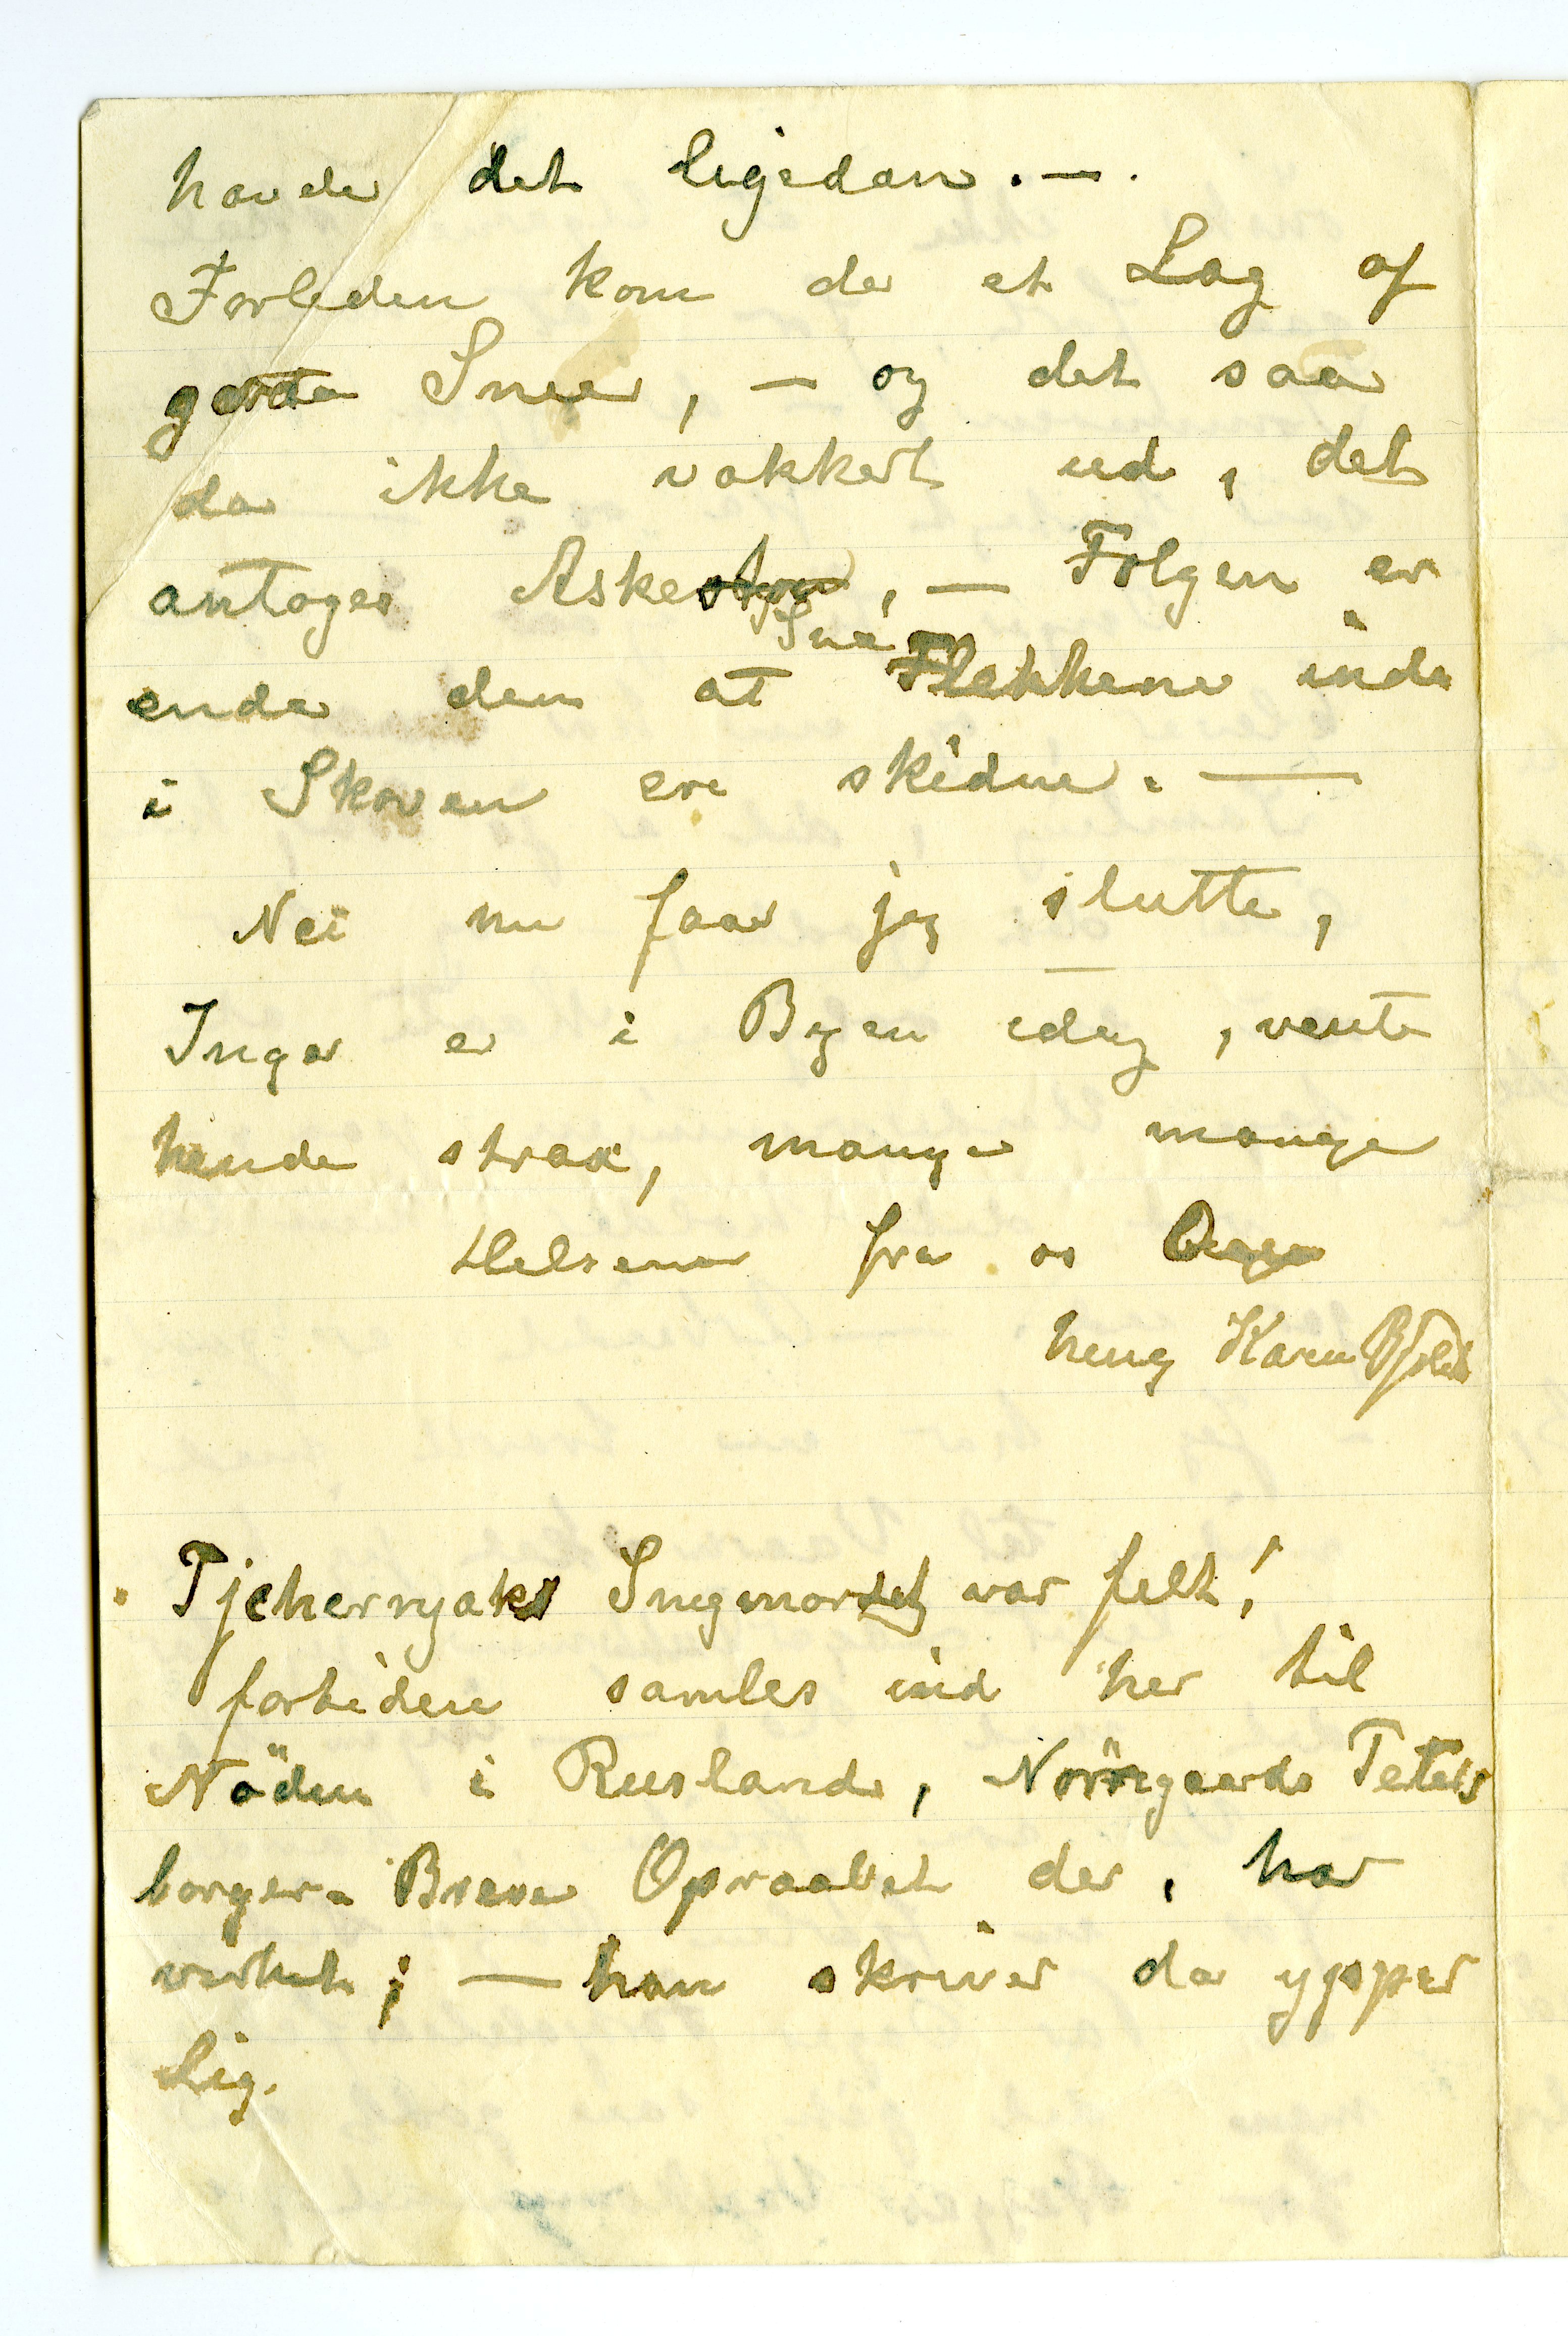 havde det ligedan. —.
Forleden kom der et Lag af
graa Snee, — og det saa
da ikke vakkert ud, det
antoges Aske, — Følgen er
enda den at Sne Flekkene inde
i Skoven ere skidne. —
Nei nu faar jeg slutte,
Inga er i Byen idag, venter
hende strax, mange mange
Helsener fra os
heng Karen Bjølstad
Tjchernyaks Snigmordet var fælt!
fortiden samles ind her til
Nöden i Rusland, Nörregaards Peters
borger- Breve Opraabet der, har
virket; — han skriver da ypper
lig.